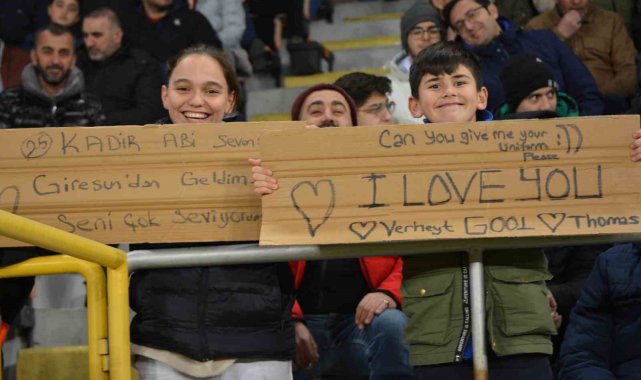 25 KADIR Abi
Giresun'dan Geldim.
Seni Çok Seviyorum
Can you give me your
uniform :))
Please
I LOVE YOU
♡ Verheyt GOOL ♡ Thomas